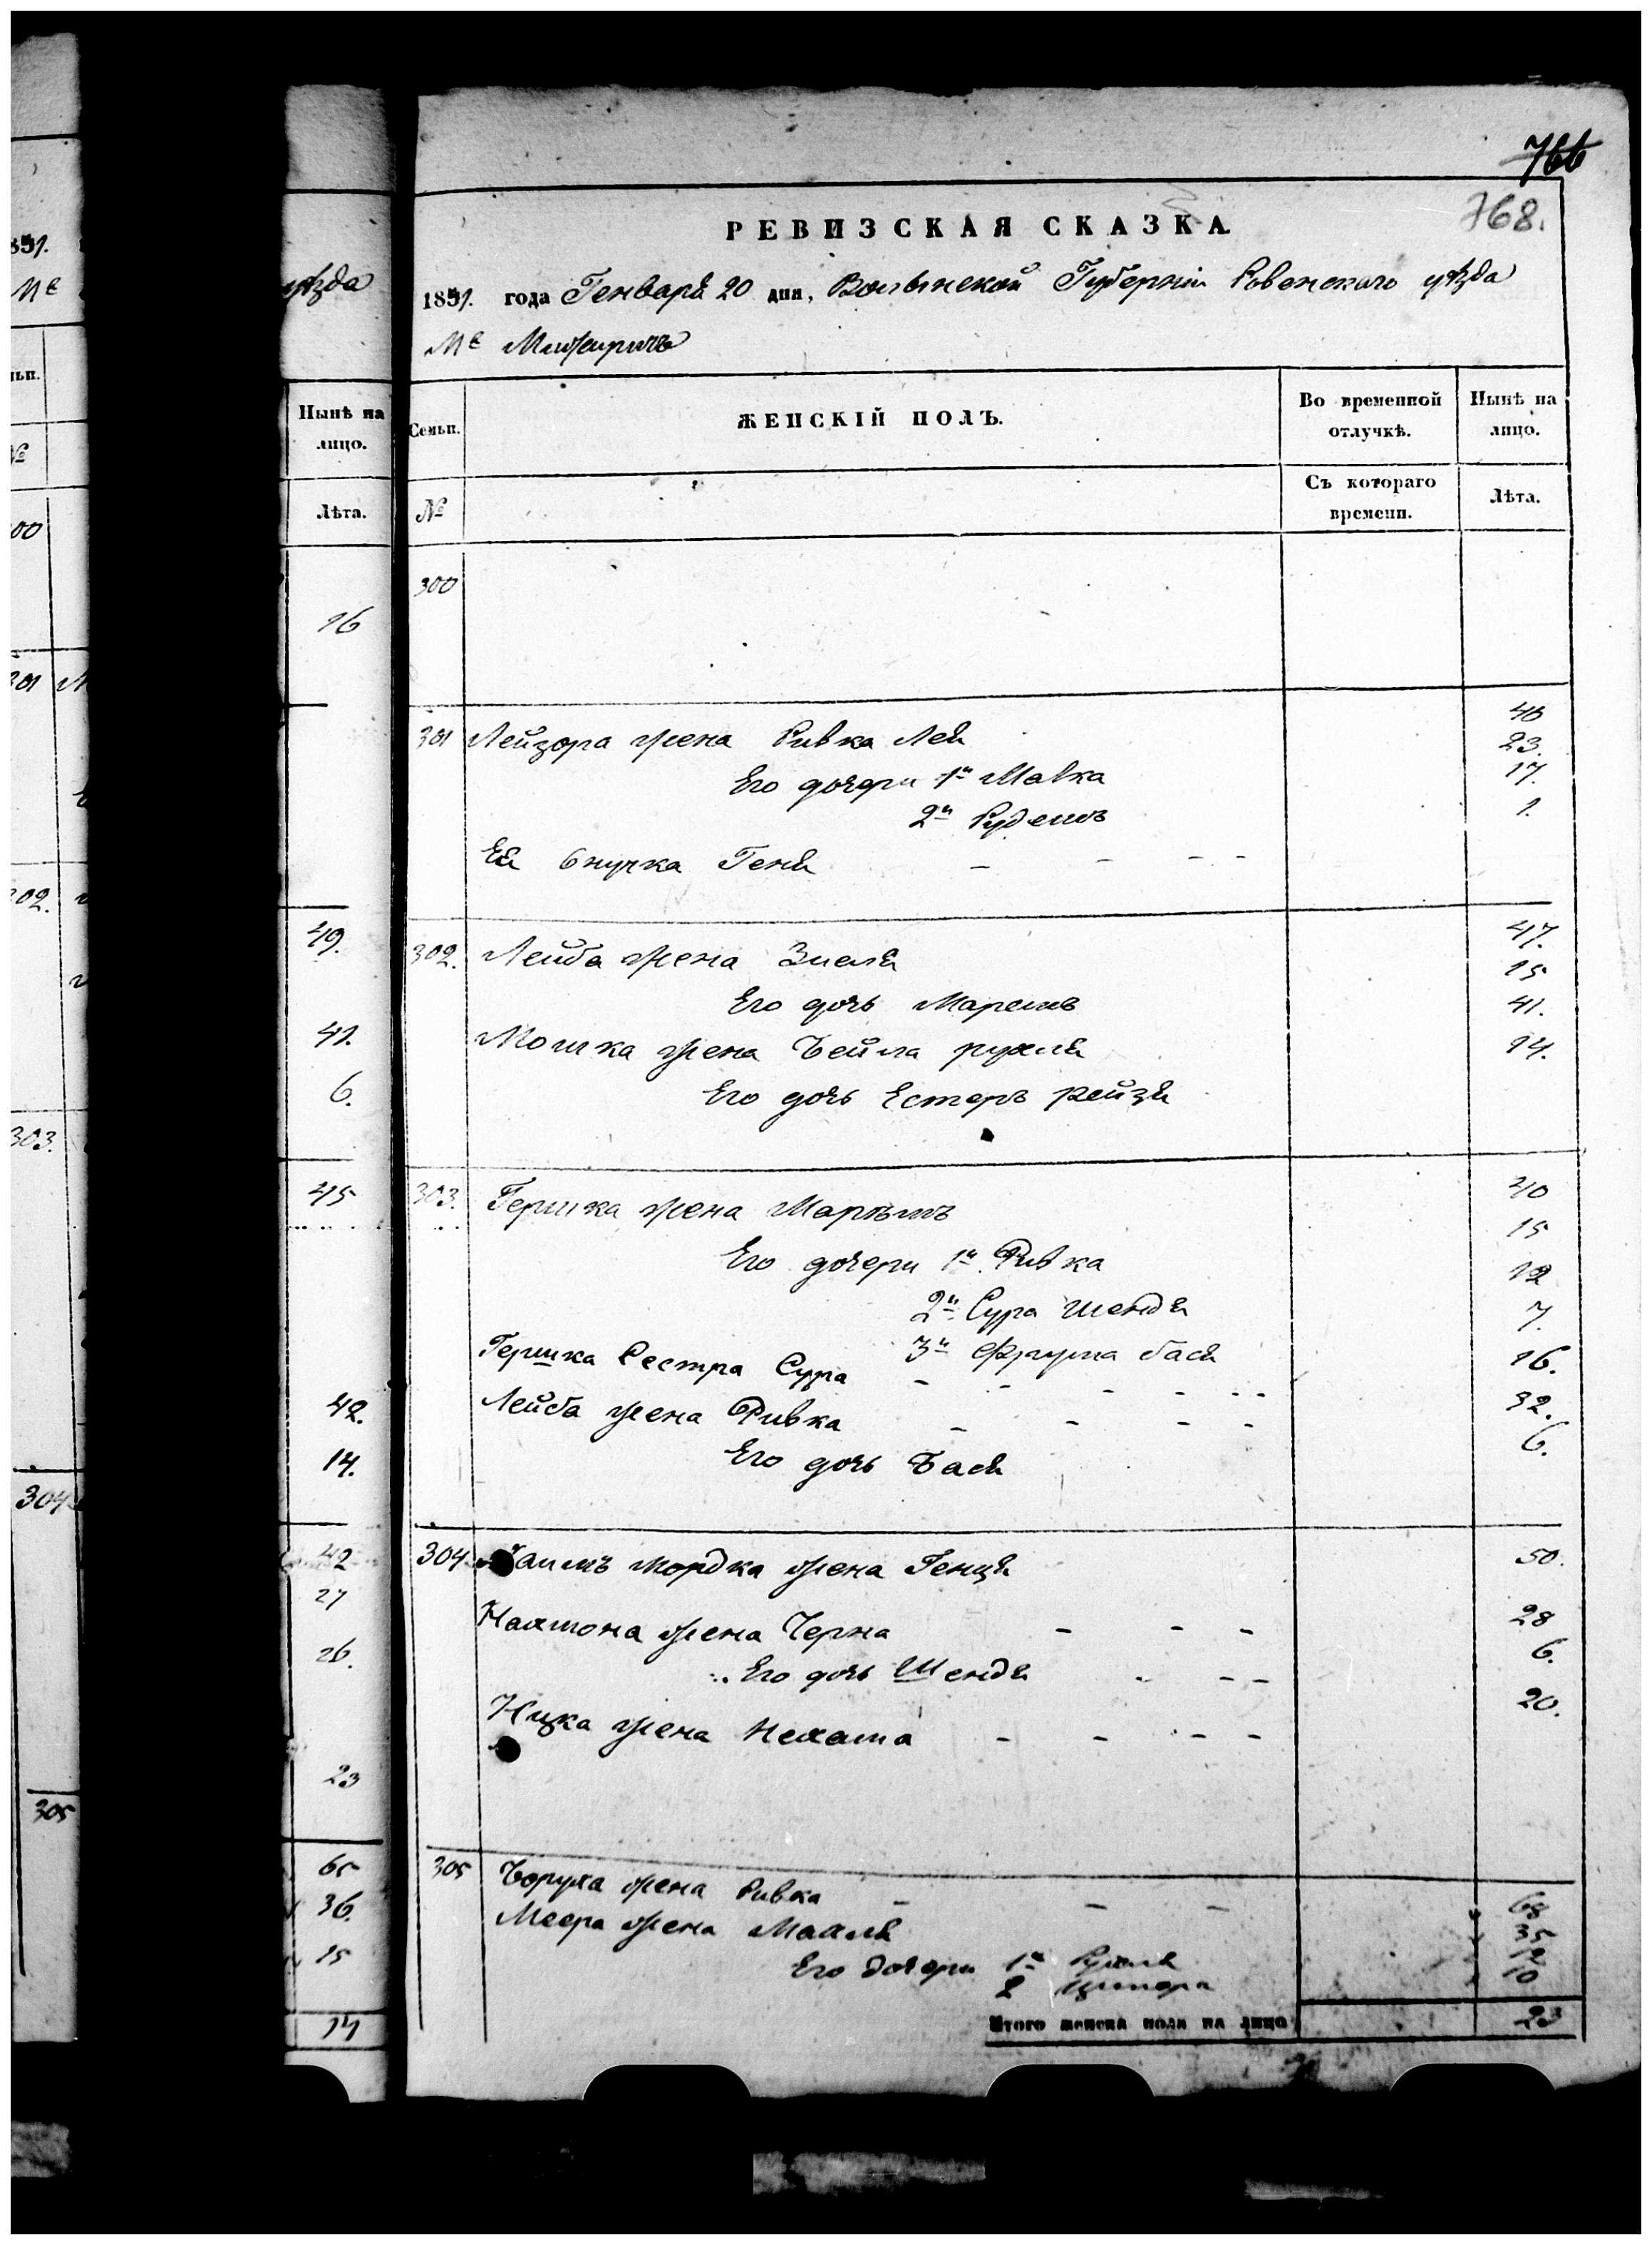 766
768.
РЕВИЗСКАЯ СКАЗКА.
1851. года Генваря 20 дня, Волынской Губерніи Ровенскаго уѣзда
Мѣ Межиричь
Семьи. ЖЕНСКІЙ ПОЛЪ. Во временной отлучкѣ. Нынѣ на лицо.
№ Съ котораго времени. Лѣта.
300
301 Лейзора жена Ривка Лея 40
Его дочери 1я Малка 23.
2я Рудешь 17.
Ея внучка Геня - - - - 1.
302. Лейба жена Зисля 47.
Его дочь Маремъ 15
Мошка жена Бейла рухля 41.
Его дочь Естеръ рейзя 14.
303. Гершка жена Марьямъ 40
Его дочери 1я Ривка 15
2я Сура шендя 12
3я Фрума бася 7.
Гершка Сестра Сура - - - - - - 16.
Лейба жена Ривка - - - - 32.
Его дочь Бася 6.
304. Хаимъ Мордка жена Генця 50.
Нахмона жена Черна - - - 28
Его дочь Шендя - - - 6.
Ицка жена Нехама - - - - 20.
305 Боруха жена Ривка - - - 68
Меера жена Махля 35
Его дочери 1я Рухля 12
2 Ципора 10
Итого женска пола на лицо 23
уѣзда
Нынѣ на лицо.
Лѣта.
16
49.
41.
6.
45
42.
14.
42
27
26.
23
65
36.
15
14
1851.
Мѣ
№
303.
304
305